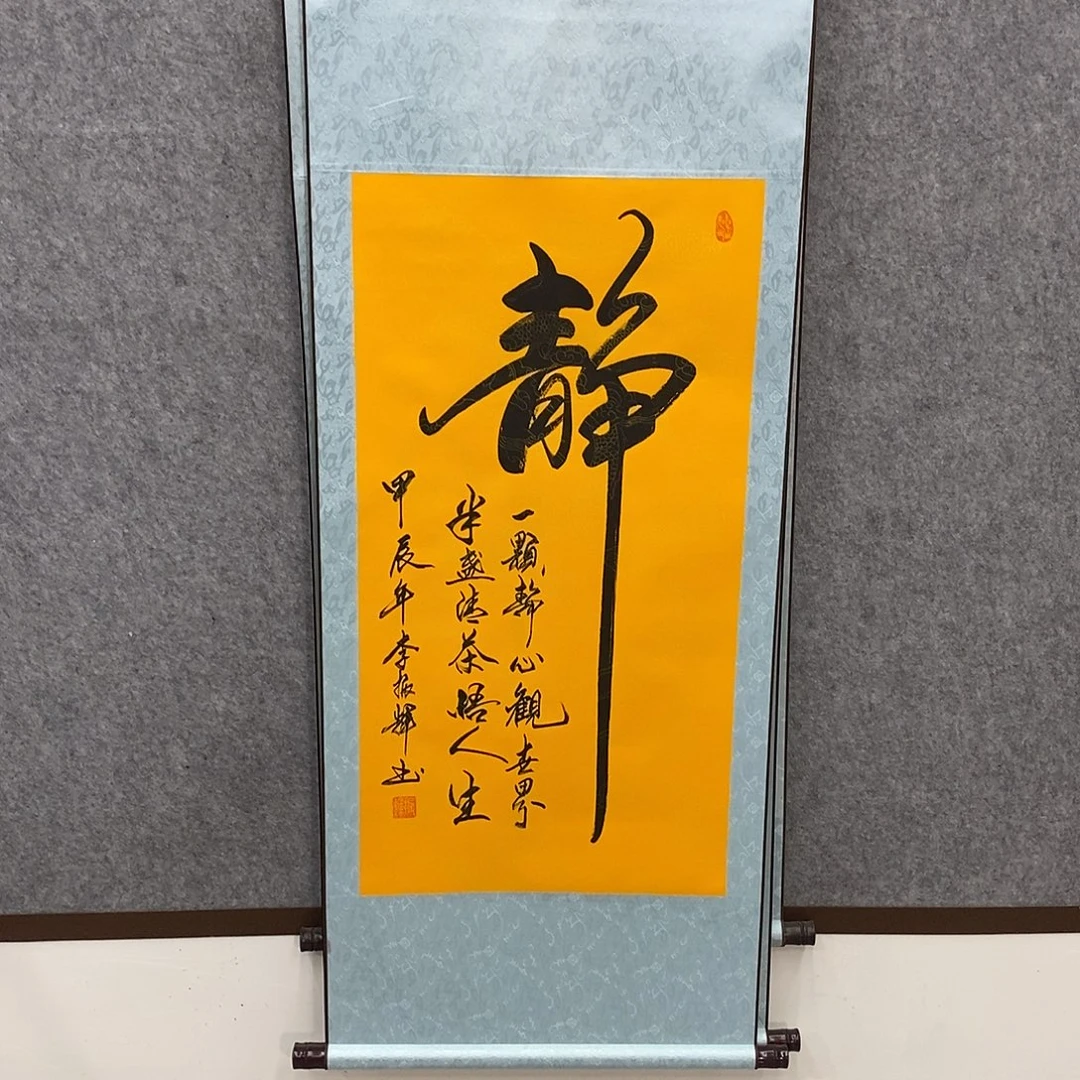 静
一顆静心觀世界
半盏清茶悟人生
甲辰年李振輝书